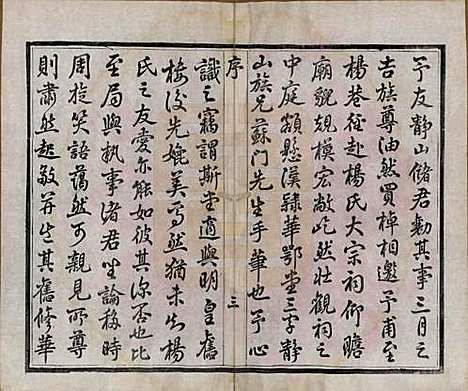 予友静山儲君勷其事三月之
吉族尊油然買棹相邀予甫至
楊巷徑赴楊氏大宗祠仰瞻
廟貌規模宏敞屹然壯觀祠之
中庭額懸漢隸華鄂堂三字靜
山族兄蘇門先生手筆也予心
序
三
識之竊謂斯堂適與明皇舊
樓後先媲美焉然猶未知楊
氏之友愛亦能如彼其深否也比
至局與執事諸君坐論移時
周旋笑語藹然可親見所尊
則肅然起敬并出其舊修華